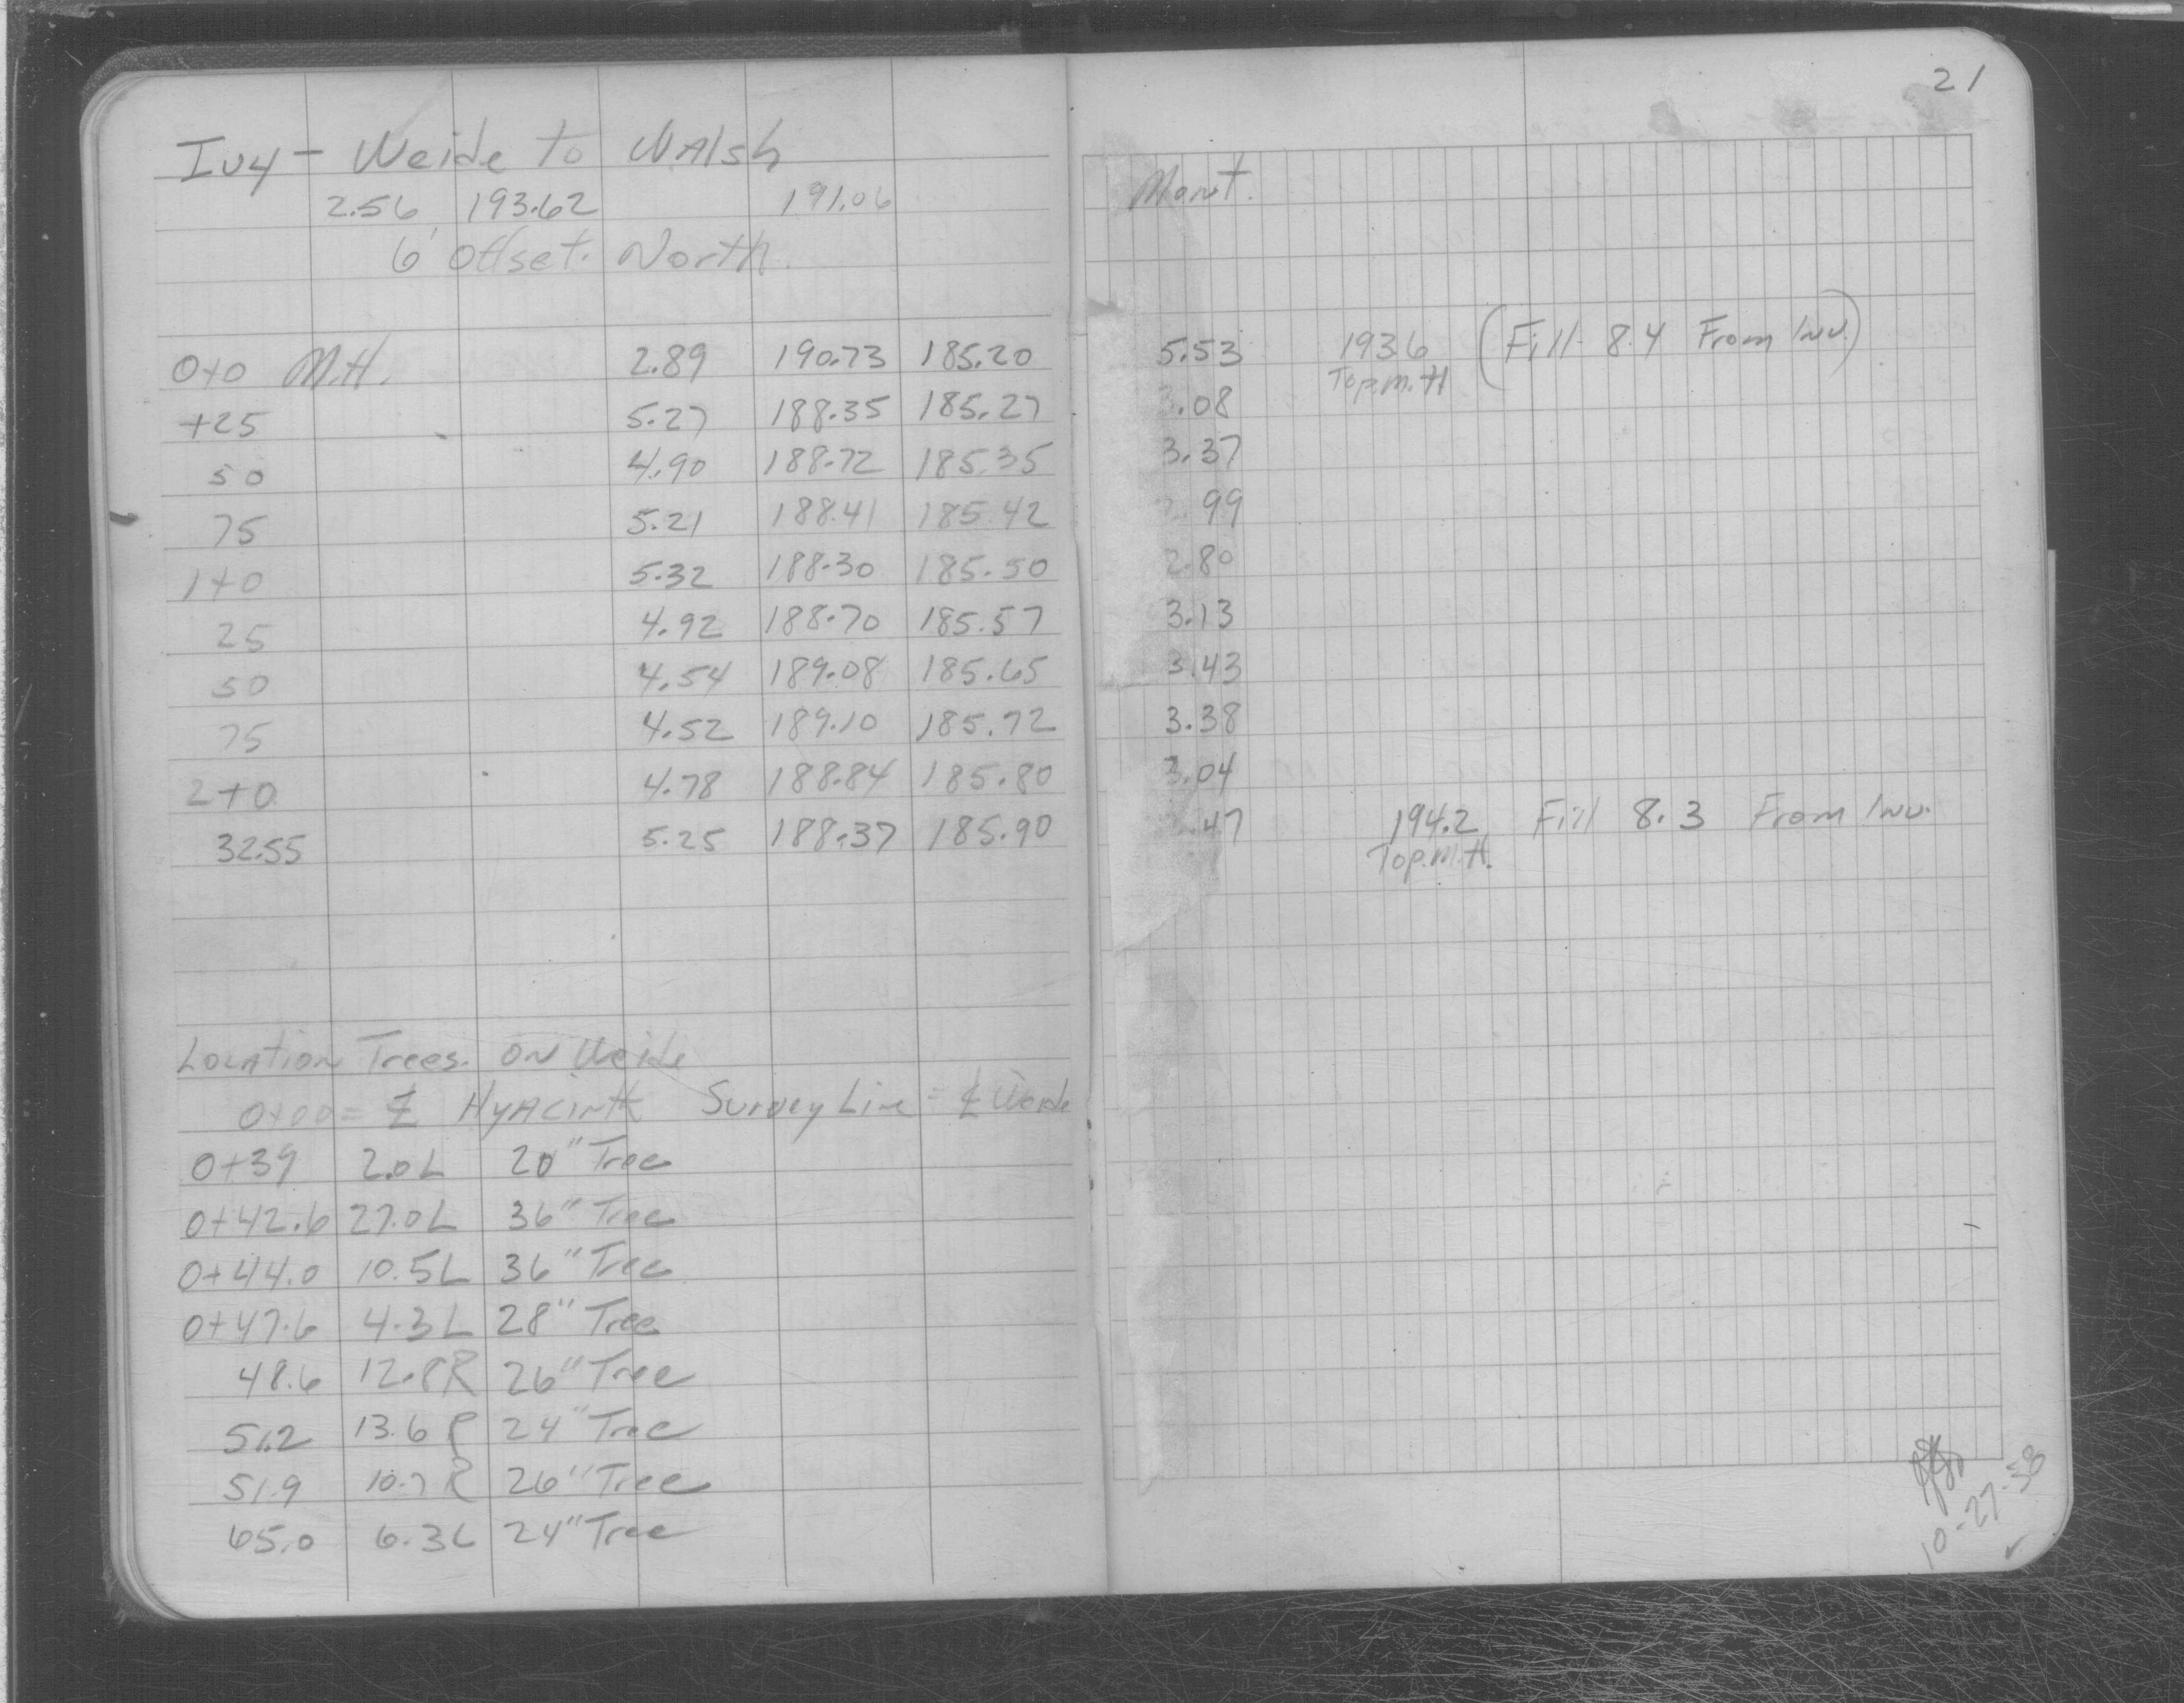 21
Ivy - Weide to Walsh
2.56 193.62 191.06 Mont.
6' Offset. North.
0+0 M.H. 2.89 190.73 185.20 5.53 193.6 (Fill 8.4 From Inv.)
Top.M.H
+25 5.27 188.35 185.27 3.08
50 4.90 188.72 185.35 3.37
75 5.21 188.41 185.42 2.99
1+0 5.32 188.30 185.50 2.80
25 4.92 188.70 185.57 3.13
50 4.54 189.08 185.65 3.43
75 4.52 189.10 185.72 3.38
2+0 4.78 188.84 185.80 3.04
32.55 5.25 188.37 185.90 .47 194.2 Fill 8.3 From Inv.
Top.M.H.
Location Trees. on Weide
0+00 = ℄ Hyacinth Survey Line = ℄ Weide
0+39 2.0L 20" Tree
0+42.6 27.0L 36" Tree
0+44.0 10.5L 36" Tree
0+47.6 4.3L 28" Tree
48.6 12.8R 26" Tree
51.2 13.6 R 24" Tree
51.9 10.7 R 26" Tree
65.0 6.3L 24" Tree
10-27-58